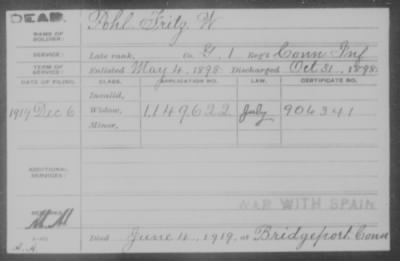 DEAD.
Pohl Fritz W
NAME OF SOLDIER:
SERVICE: Late rank, Co. G, 1 Reg't Conn Inf
TERM OF SERVICE: Enlisted May 4, 1898 Discharged Oct 31, 1898
DATE OF FILING. CLASS. APPLICATION NO. LAW. CERTIFICATE NO.
Invalid,
1919 Dec 6 Widow, 1149622 July 904341
Minor,
ADDITIONAL SERVICES:
WAR WITH SPAIN
Died June 4, 1919, at Bridgeport Conn